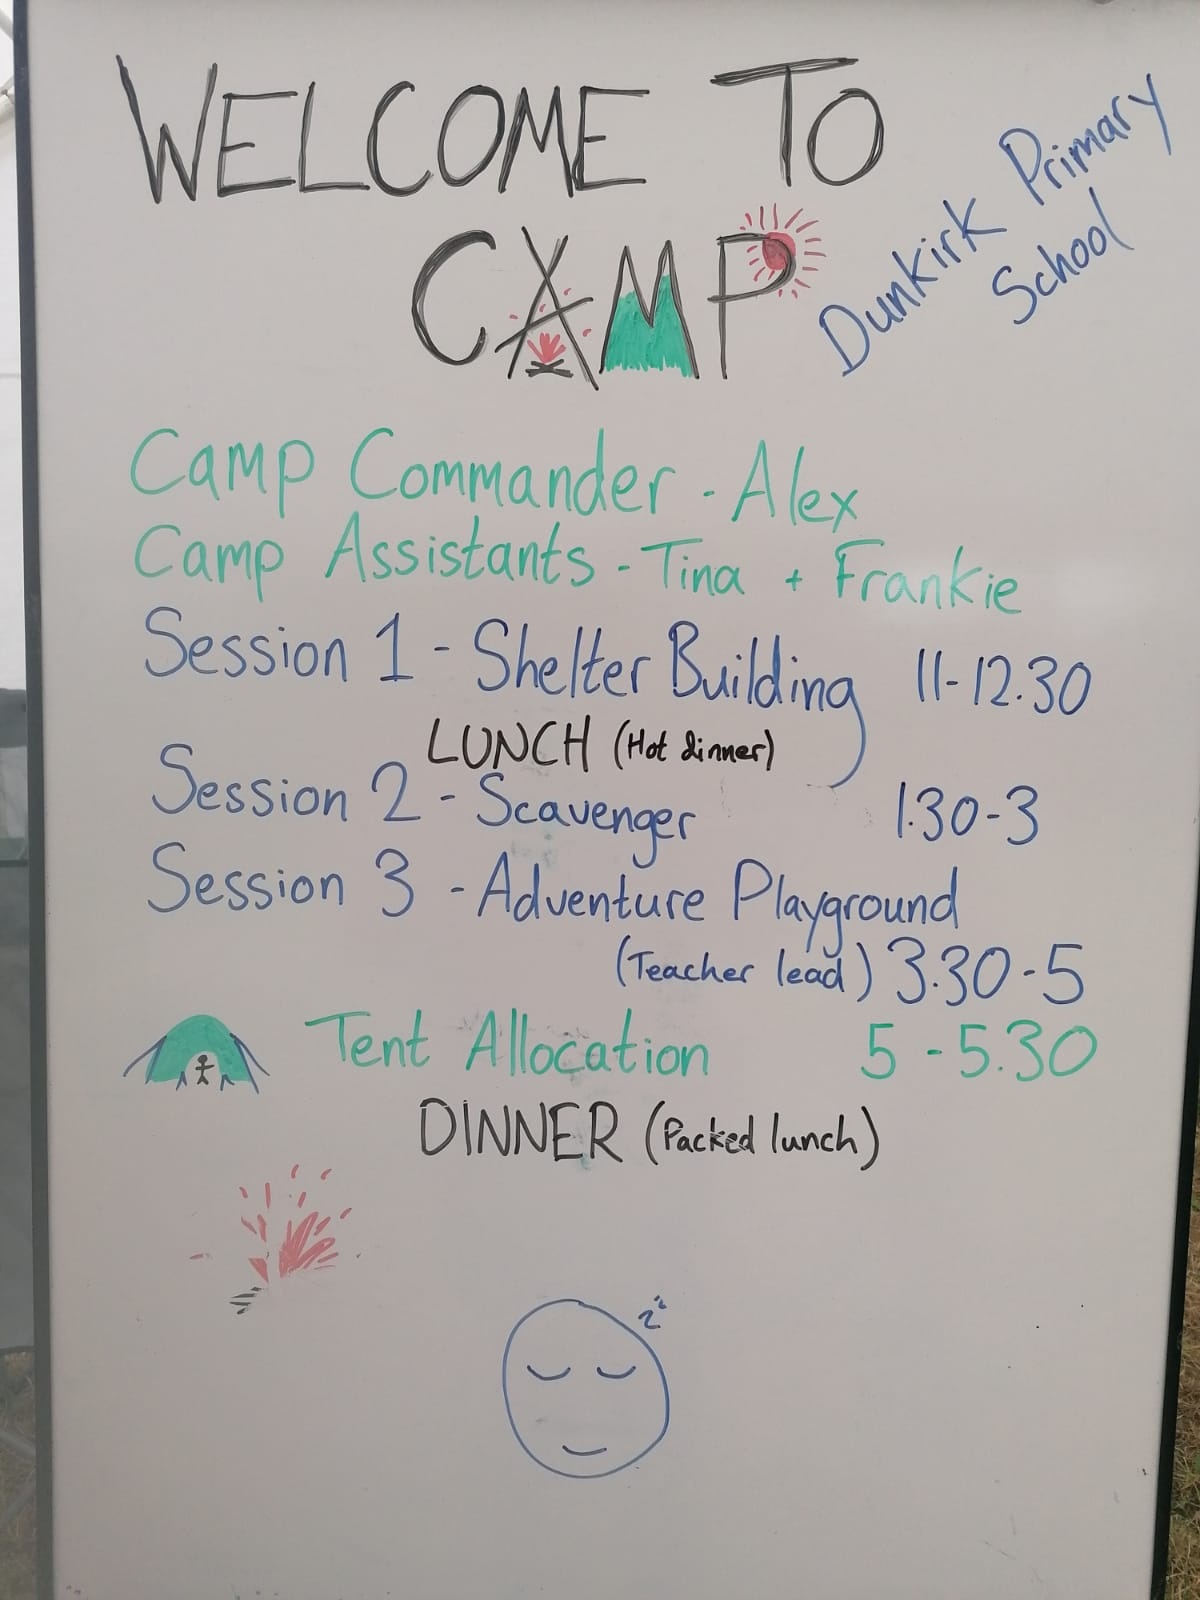 WELCOME TO
CAMP
Dunkirk Primary
School
Camp Commander - Alex
Camp Assistants - Tina + Frankie
Session 1 - Shelter Building 11-12.30
LUNCH (Hot dinner)
Session 2 - Scavenger 1.30-3
Session 3 - Adventure Playground
(Teacher lead) 3.30-5
Tent Allocation 5-5.30
DINNER (Packed lunch)
zz